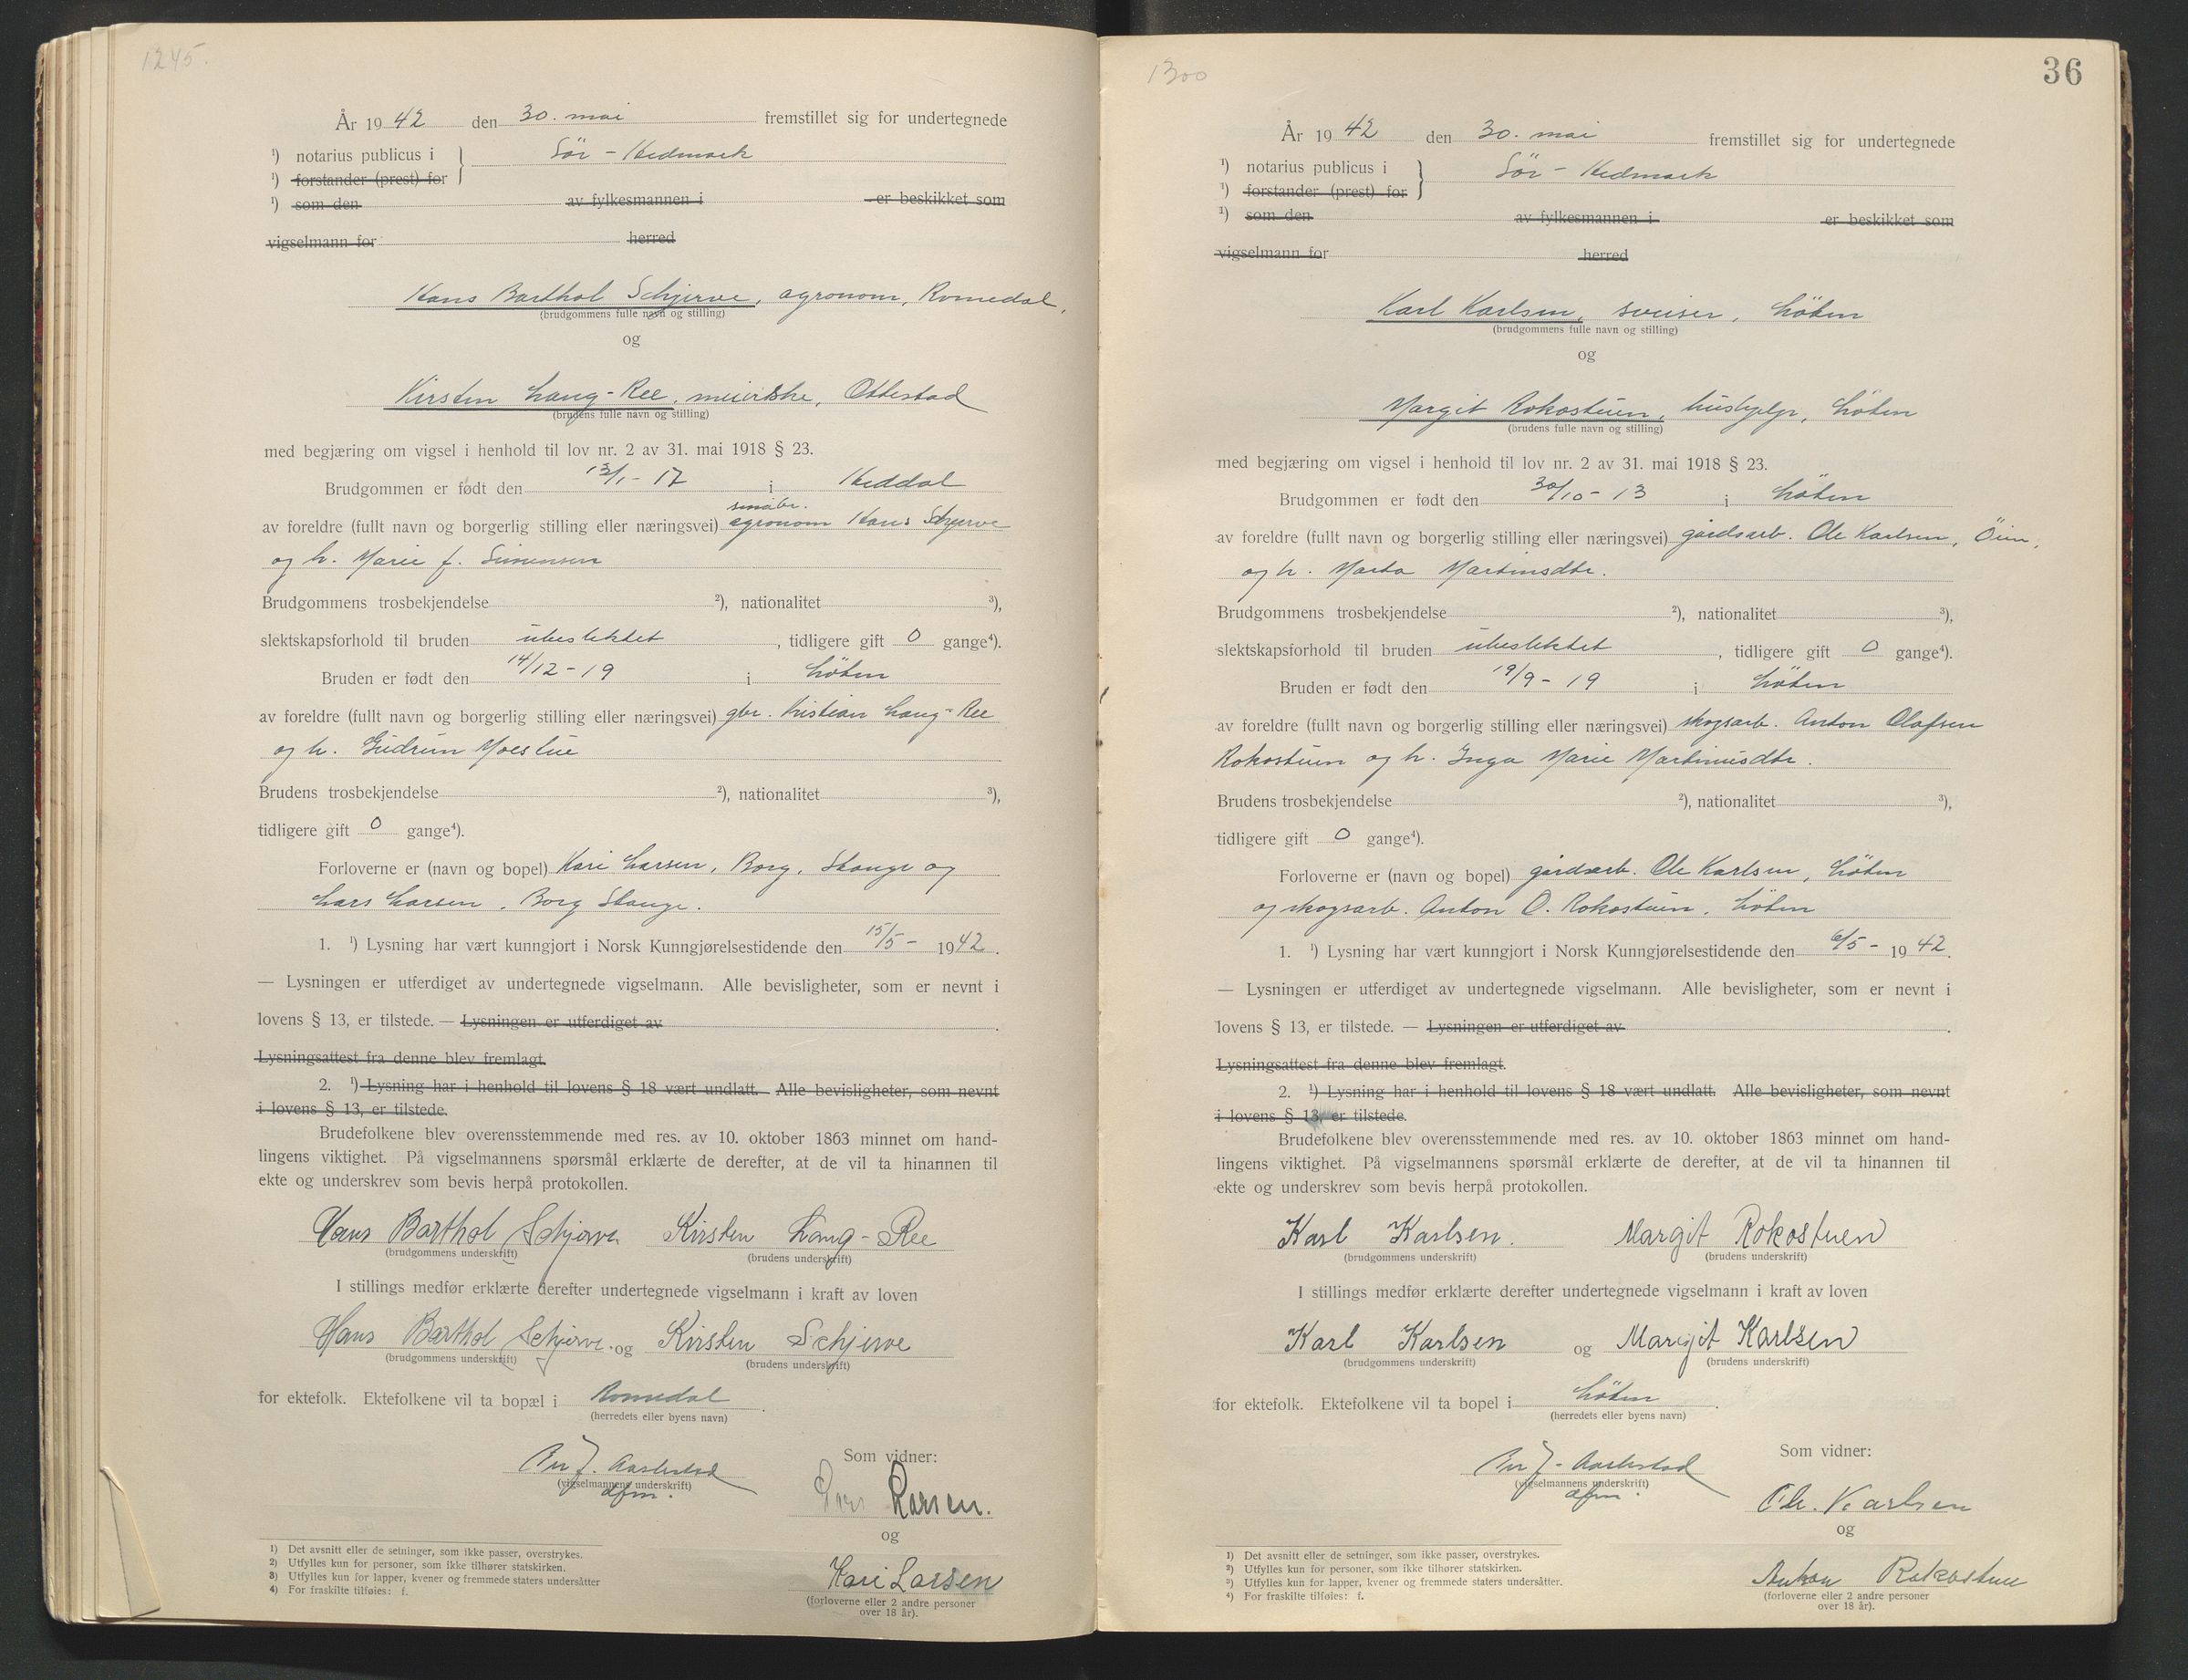 1245.
År 1942 den 30. mai fremstillet sig for undertegnede
¹) notarius publicus i } Sör - Hedmark
¹) forstander (prest) for
¹) som den av fylkesmannen i er beskikket som
vigselmann for herred
Hans Barthol Schjerve, agronom, Romedal,
(brudgommens fulle navn og stilling)
og
Kirsten Lang-Ree, meierske, Ottestad
(brudens fulle navn og stilling)
med begjæring om vigsel i henhold til lov nr. 2 av 31. mai 1918 § 23.
Brudgommen er født den 13/1 - 17 i Heddal
småbr.
av foreldre (fullt navn og borgerlig stilling eller næringsvei) agronom Hans Schjerve
og h. Marie f. Simensen
Brudgommens trosbekjendelse ²), nationalitet ³),
slektskapsforhold til bruden ubeslektet, tidligere gift 0 gange⁴).
Bruden er født den 14/12 - 19 i Löten
av foreldre (fullt navn og borgerlig stilling eller næringsvei) gbr. Kristian Lang-Ree
og h. Gudrun Moestue
Brudens trosbekjendelse ²), nationalitet ³),
tidligere gift 0 gange⁴).
Forloverne er (navn og bopel) Kari Larsen, Borg, Stange og
Lars Larsen, Borg Stange.
1. ¹) Lysning har vært kunngjort i Norsk Kunngjørelsestidende den 15/5 - 1942.
— Lysningen er utferdiget av undertegnede vigselmann. Alle bevisligheter, som er nevnt i
lovens § 13, er tilstede. — Lysningen er utferdiget av .
Lysningsattest fra denne blev fremlagt.
2. ¹) Lysning har i henhold til lovens § 18 vært undlatt. Alle bevisligheter, som nevnt
i lovens § 13, er tilstede.
Brudefolkene blev overensstemmende med res. av 10. oktober 1863 minnet om hand-
lingens viktighet. På vigselmannens spørsmål erklærte de derefter, at de vil ta hinannen til
ekte og underskrev som bevis herpå protokollen.
Hans Barthol Schjerve Kirsten Lang-Ree
(brudgommens underskrift) (brudens underskrift)
I stillings medfør erklærte derefter undertegnede vigselmann i kraft av loven
Hans Barthol Schjerve. og Kirsten Schjerve
(brudgommens underskrift) (brudens underskrift)
for ektefolk. Ektefolkene vil ta bopæl i Romedal.
(herredets eller byens navn)
Per J. Aarlestad Som vidner:
(vigselmannens underskrift)
dfm.
Lars Larsen.
og
Kari Larsen
(forloverne eller 2 andre personer
over 18 år).
1) Det avsnitt eller de setninger, som ikke passer, overstrykes.
2) Utfylles kun for personer, som ikke tilhører statskirken.
3) Utfylles kun for lapper, kvener og fremmede staters undersåtter
4) For fraskilte tilføies: f.
1300
36
År 1942 den 30. mai fremstillet sig for undertegnede
¹) notarius publicus i } Sör - Hedmark
¹) forstander (prest) for
¹) som den av fylkesmannen i er beskikket som
vigselmann for herred
Karl Karlsen, sveiser, Löten
(brudgommens fulle navn og stilling)
og
Margit Rokostuen, hushjelp, Löten
(brudens fulle navn og stilling)
med begjæring om vigsel i henhold til lov nr. 2 av 31. mai 1918 § 23.
Brudgommen er født den 30/10 - 13 i Löten
av foreldre (fullt navn og borgerlig stilling eller næringsvei) gårdsarb. Ole Karlsen,
og h. Marta Martinsdtr.
Brudgommens trosbekjendelse ²), nationalitet ³),
slektskapsforhold til bruden ubeslektet, tidligere gift 0 gange⁴).
Bruden er født den 19/9 - 19 i Löten
av foreldre (fullt navn og borgerlig stilling eller næringsvei) skogsarb. Anton Olafsen
Rokostuen og h. Inga Marie Martinusdtr.
Brudens trosbekjendelse ²), nationalitet ³),
tidligere gift 0 gange⁴).
Forloverne er (navn og bopel) gårdsarb. Ole Karlsen, Löten
og skogsarb. Anton O. Rokostuen, Löten
1. ¹) Lysning har vært kunngjort i Norsk Kunngjørelsestidende den 6/5 - 1942.
— Lysningen er utferdiget av undertegnede vigselmann. Alle bevisligheter, som er nevnt i
lovens § 13, er tilstede. — Lysningen er utferdiget av .
Lysningsattest fra denne blev fremlagt.
2. ¹) Lysning har i henhold til lovens § 18 vært undlatt. Alle bevisligheter, som nevnt
i lovens § 13, er tilstede.
Brudefolkene blev overensstemmende med res. av 10. oktober 1863 minnet om hand-
lingens viktighet. På vigselmannens spørsmål erklærte de derefter, at de vil ta hinannen til
ekte og underskrev som bevis herpå protokollen.
Karl Karlsen. Margit Rokostuen
(brudgommens underskrift) (brudens underskrift)
I stillings medfør erklærte derefter undertegnede vigselmann i kraft av loven
Karl Karlsen og Margit Karlsen
(brudgommens underskrift) (brudens underskrift)
for ektefolk. Ektefolkene vil ta bopel i Löten.
(herredets eller byens navn)
Per J. Aarlestad Som vidner:
(vigselmannens underskrift)
dfm.
Ole. Karlsen
og
Anton Rokostuen
(forloverne eller 2 andre personer
over 18 år).
1) Det avsnitt eller de setninger, som ikke passer, overstrykes.
2) Utfylles kun for personer, som ikke tilhører statskirken.
3) Utfylles kun for lapper, kvener og fremmede staters undersåtter.
4) For fraskilte tilføies: f.